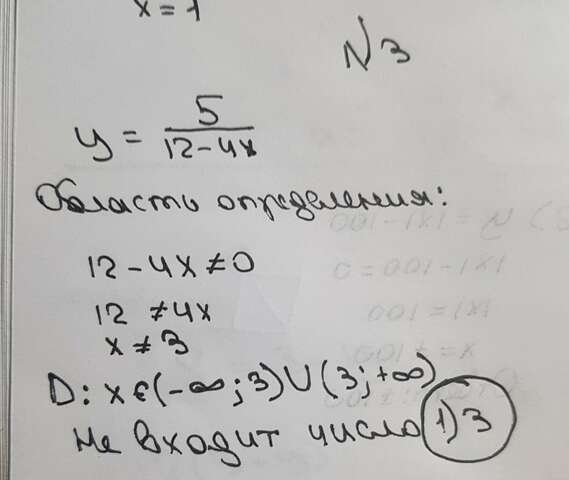 x = 1
N3
y = 5/(12-4x)
Область определения:
12-4x≠0
12 ≠4x
x ≠ 3
D: x∈(-∞;3)∪(3;+∞)
Не входит число 1) 3
|x|-100
|x|-100=0
|x|=100